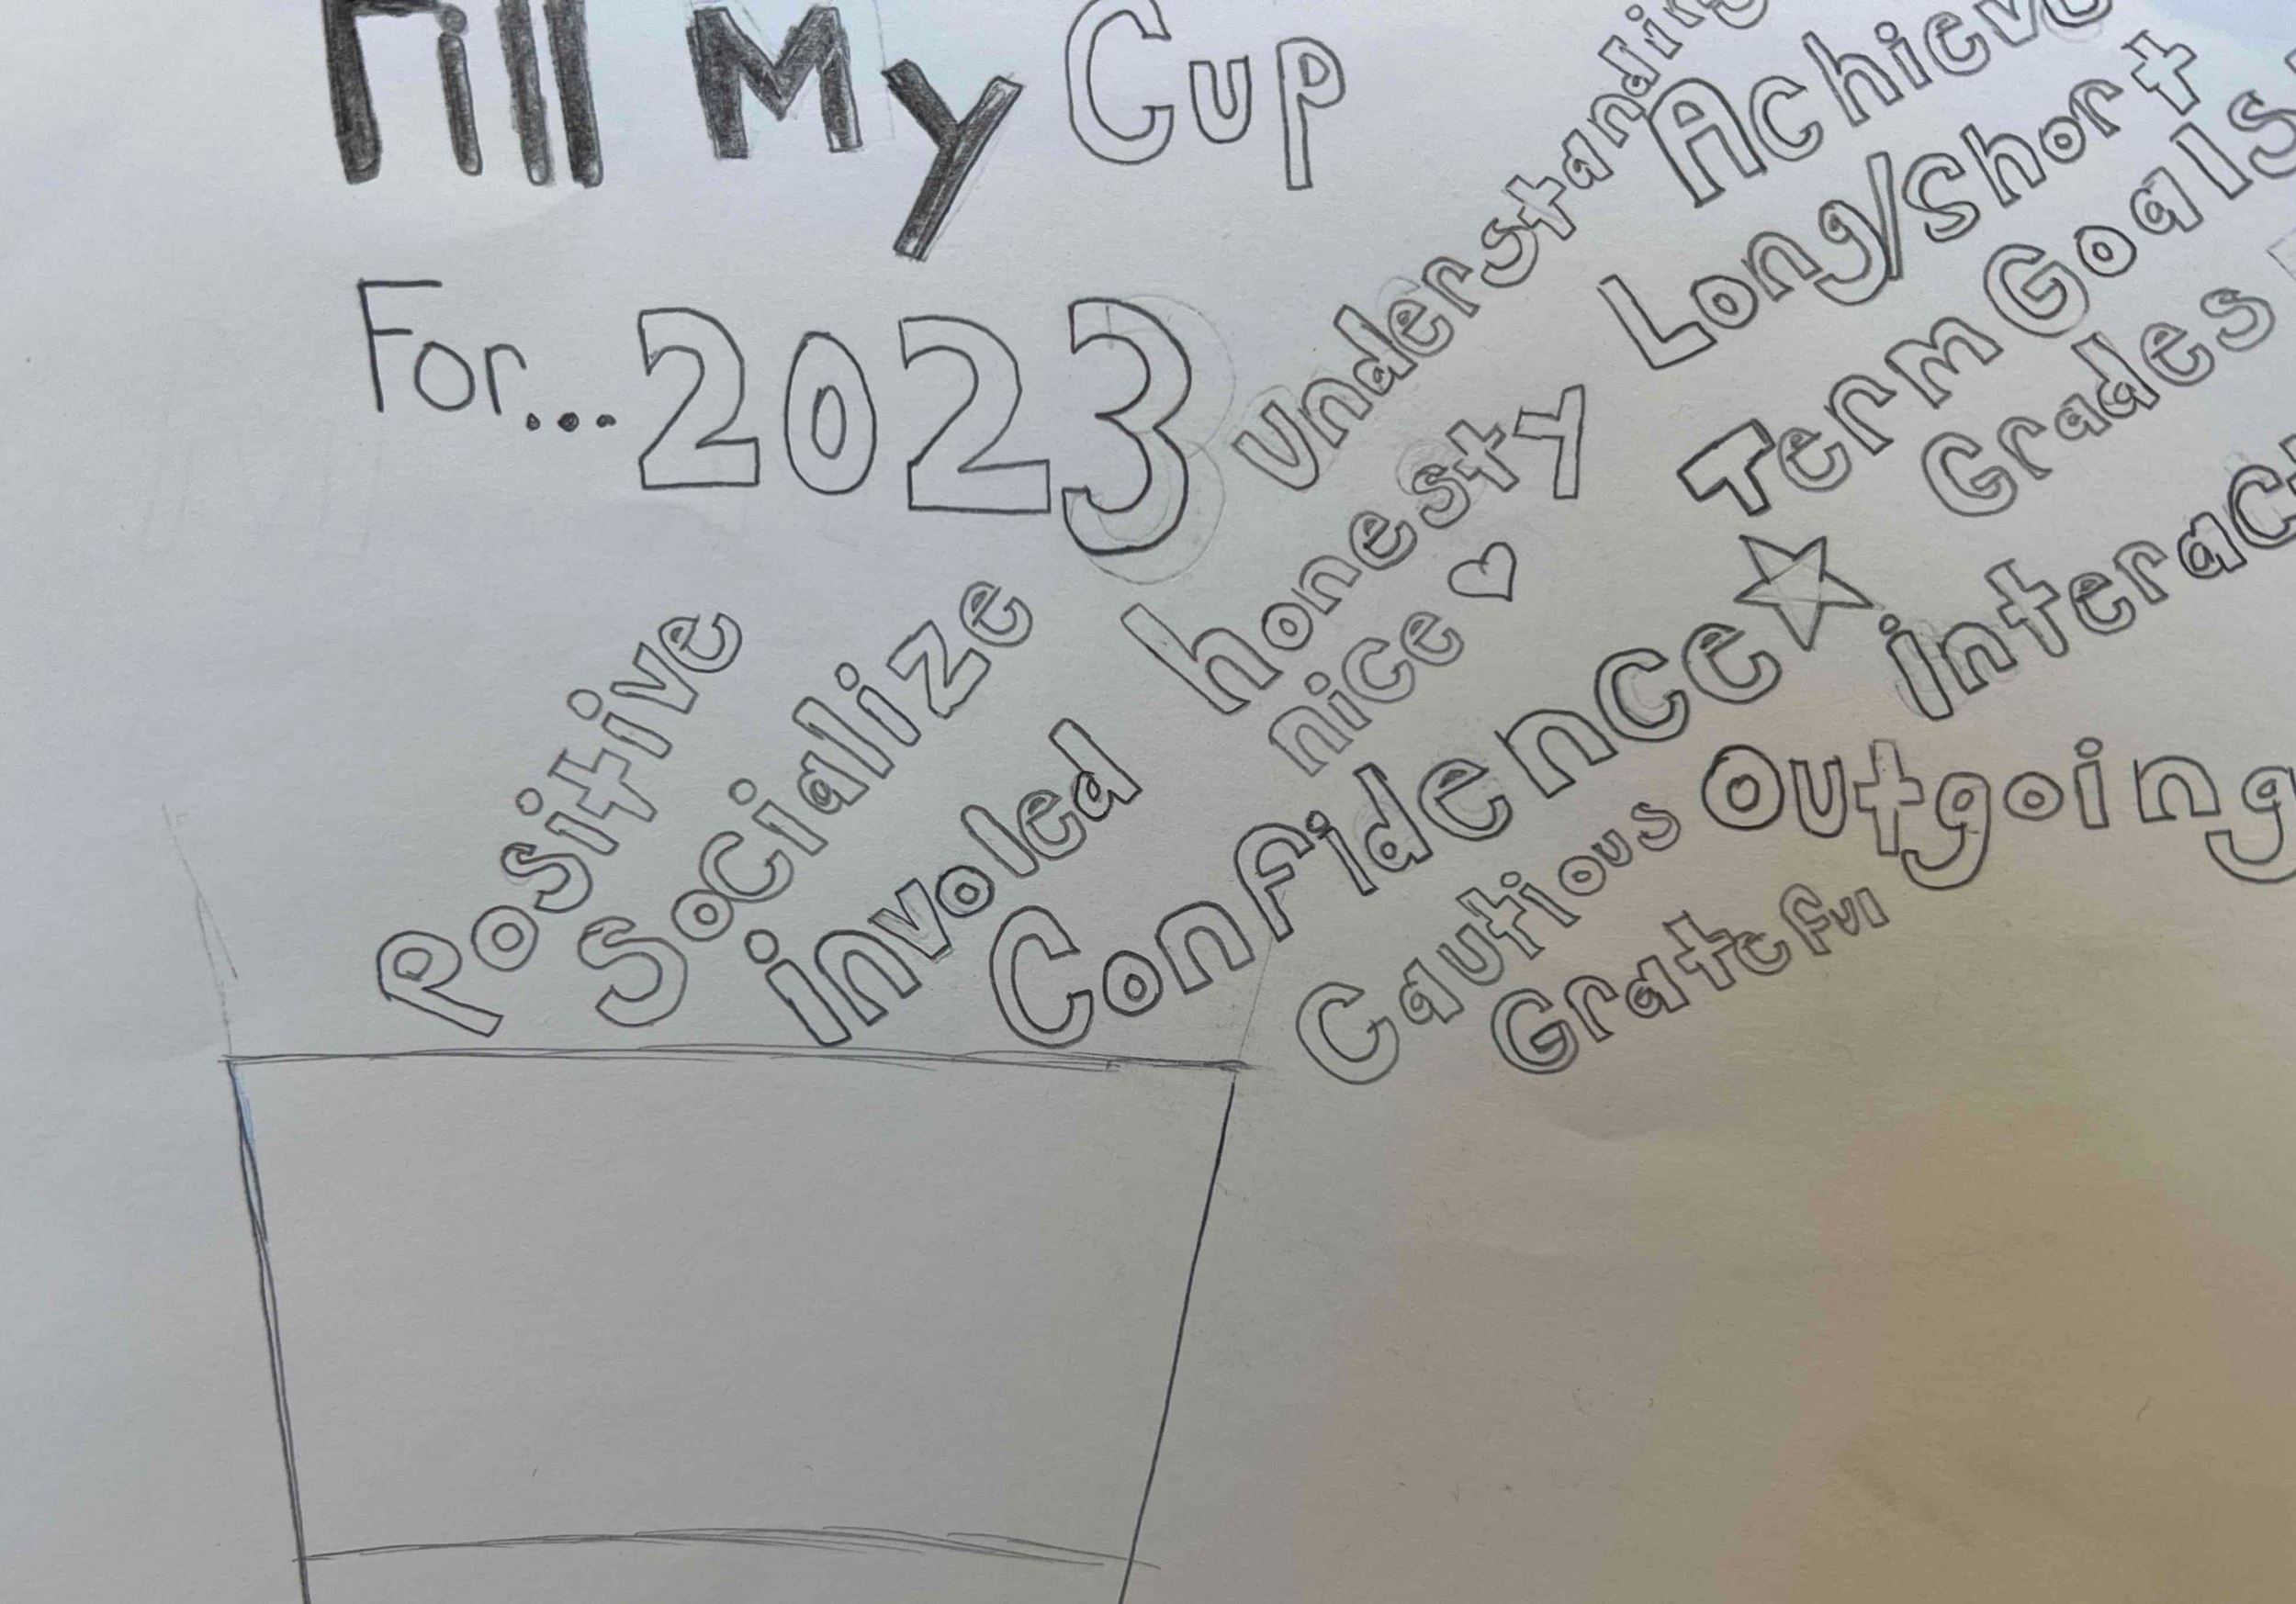 Fill My Cup
For... 2023
Positive
Socialize
involed
Understanding
honesty
nice
Confidence
Achieve
Long/Short
Term Goals
Grades
interact
Cautious
Outgoing
Grateful